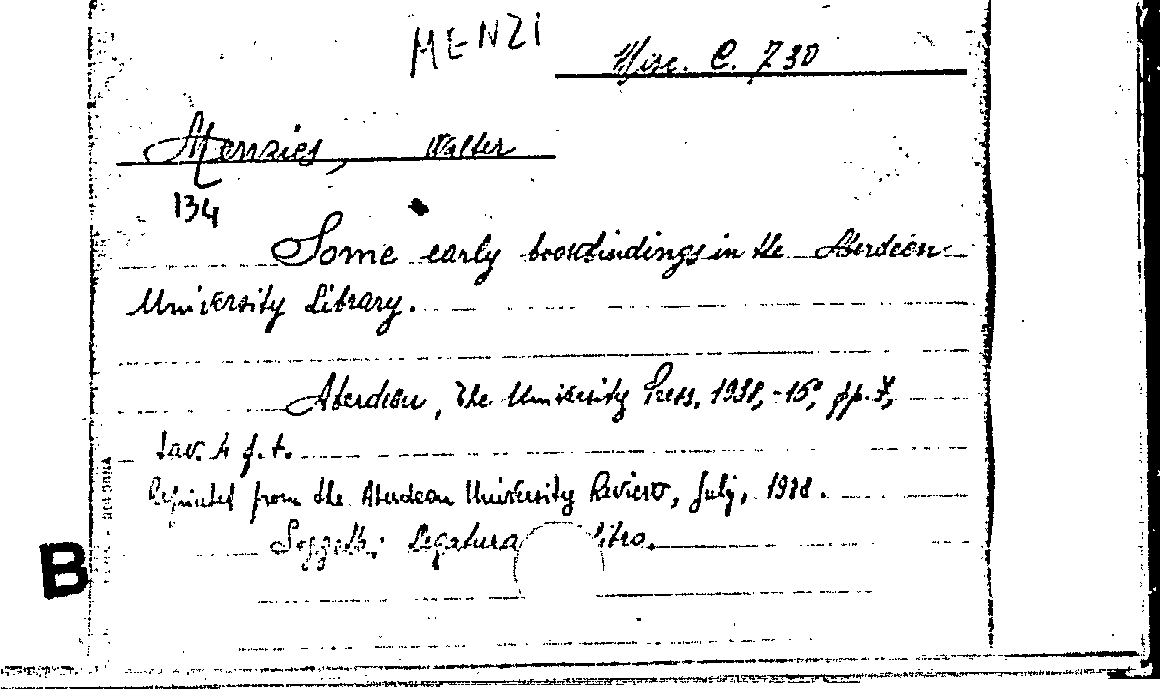 MENZI
Misc. C. 730
Menzies, Walter
134
Some early bookbindings in the Aberdeen
University Library.
Aberdeen, The University Press, 1938, -16°, pp. 7,
tav. 4 f.t.
Reprinted from the Aberdeen University Review, July, 1938.
Soggetto: Legatura libro.
B